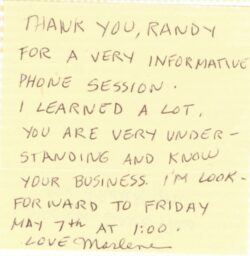 THANK YOU, RANDY
FOR A VERY INFORMATIVE
PHONE SESSION.
I LEARNED A LOT.
YOU ARE VERY UNDER-
STANDING AND KNOW
YOUR BUSINESS. I'M LOOK-
FORWARD TO FRIDAY
MAY 7th AT 1:00.
LOVE Marlene